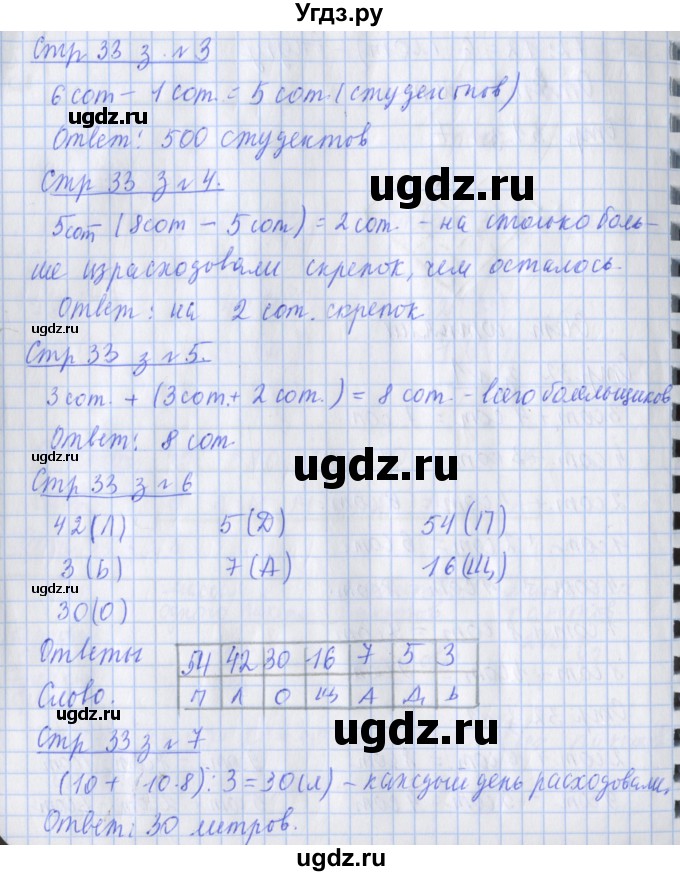 Угдз.ру
Стр 33 з №3
6 сот - 1 сот. = 5 сот. (студентов)
ugdz.ru
Ответ: 500 студентов
ugdz.ru
Стр 33 з №4.
5 сот (8 сот - 5 сот) = 2 сот. - на столько боль-
ugdz.ru
ше израсходовали скрепок, чем осталось.
Ответ: на 2 сот. скрепок
ugdz.ru
Стр 33 з №5.
3 сот. + (3 сот. + 2 сот.) = 8 сот. - всего болельщиков
Ответ: 8 сот.
ugdz.ru
ugdz.ru
Стр 33 з №6
42 (Л) 5 (Д) 54 (П)
3 (Ь) 7 (А) 16 (Щ)
ugdz.ru
30 (О)
Ответы 54 42 30 16 7 5 3
Слово. П Л О Щ А Д Ь
ugdz.ru
ugdz.ru
Стр 33 з №7
(10 + 10·8) : 3 = 30 (л) - каждый день расходовали.
Ответ: 30 литров.
ugdz.ru
ugdz.ru